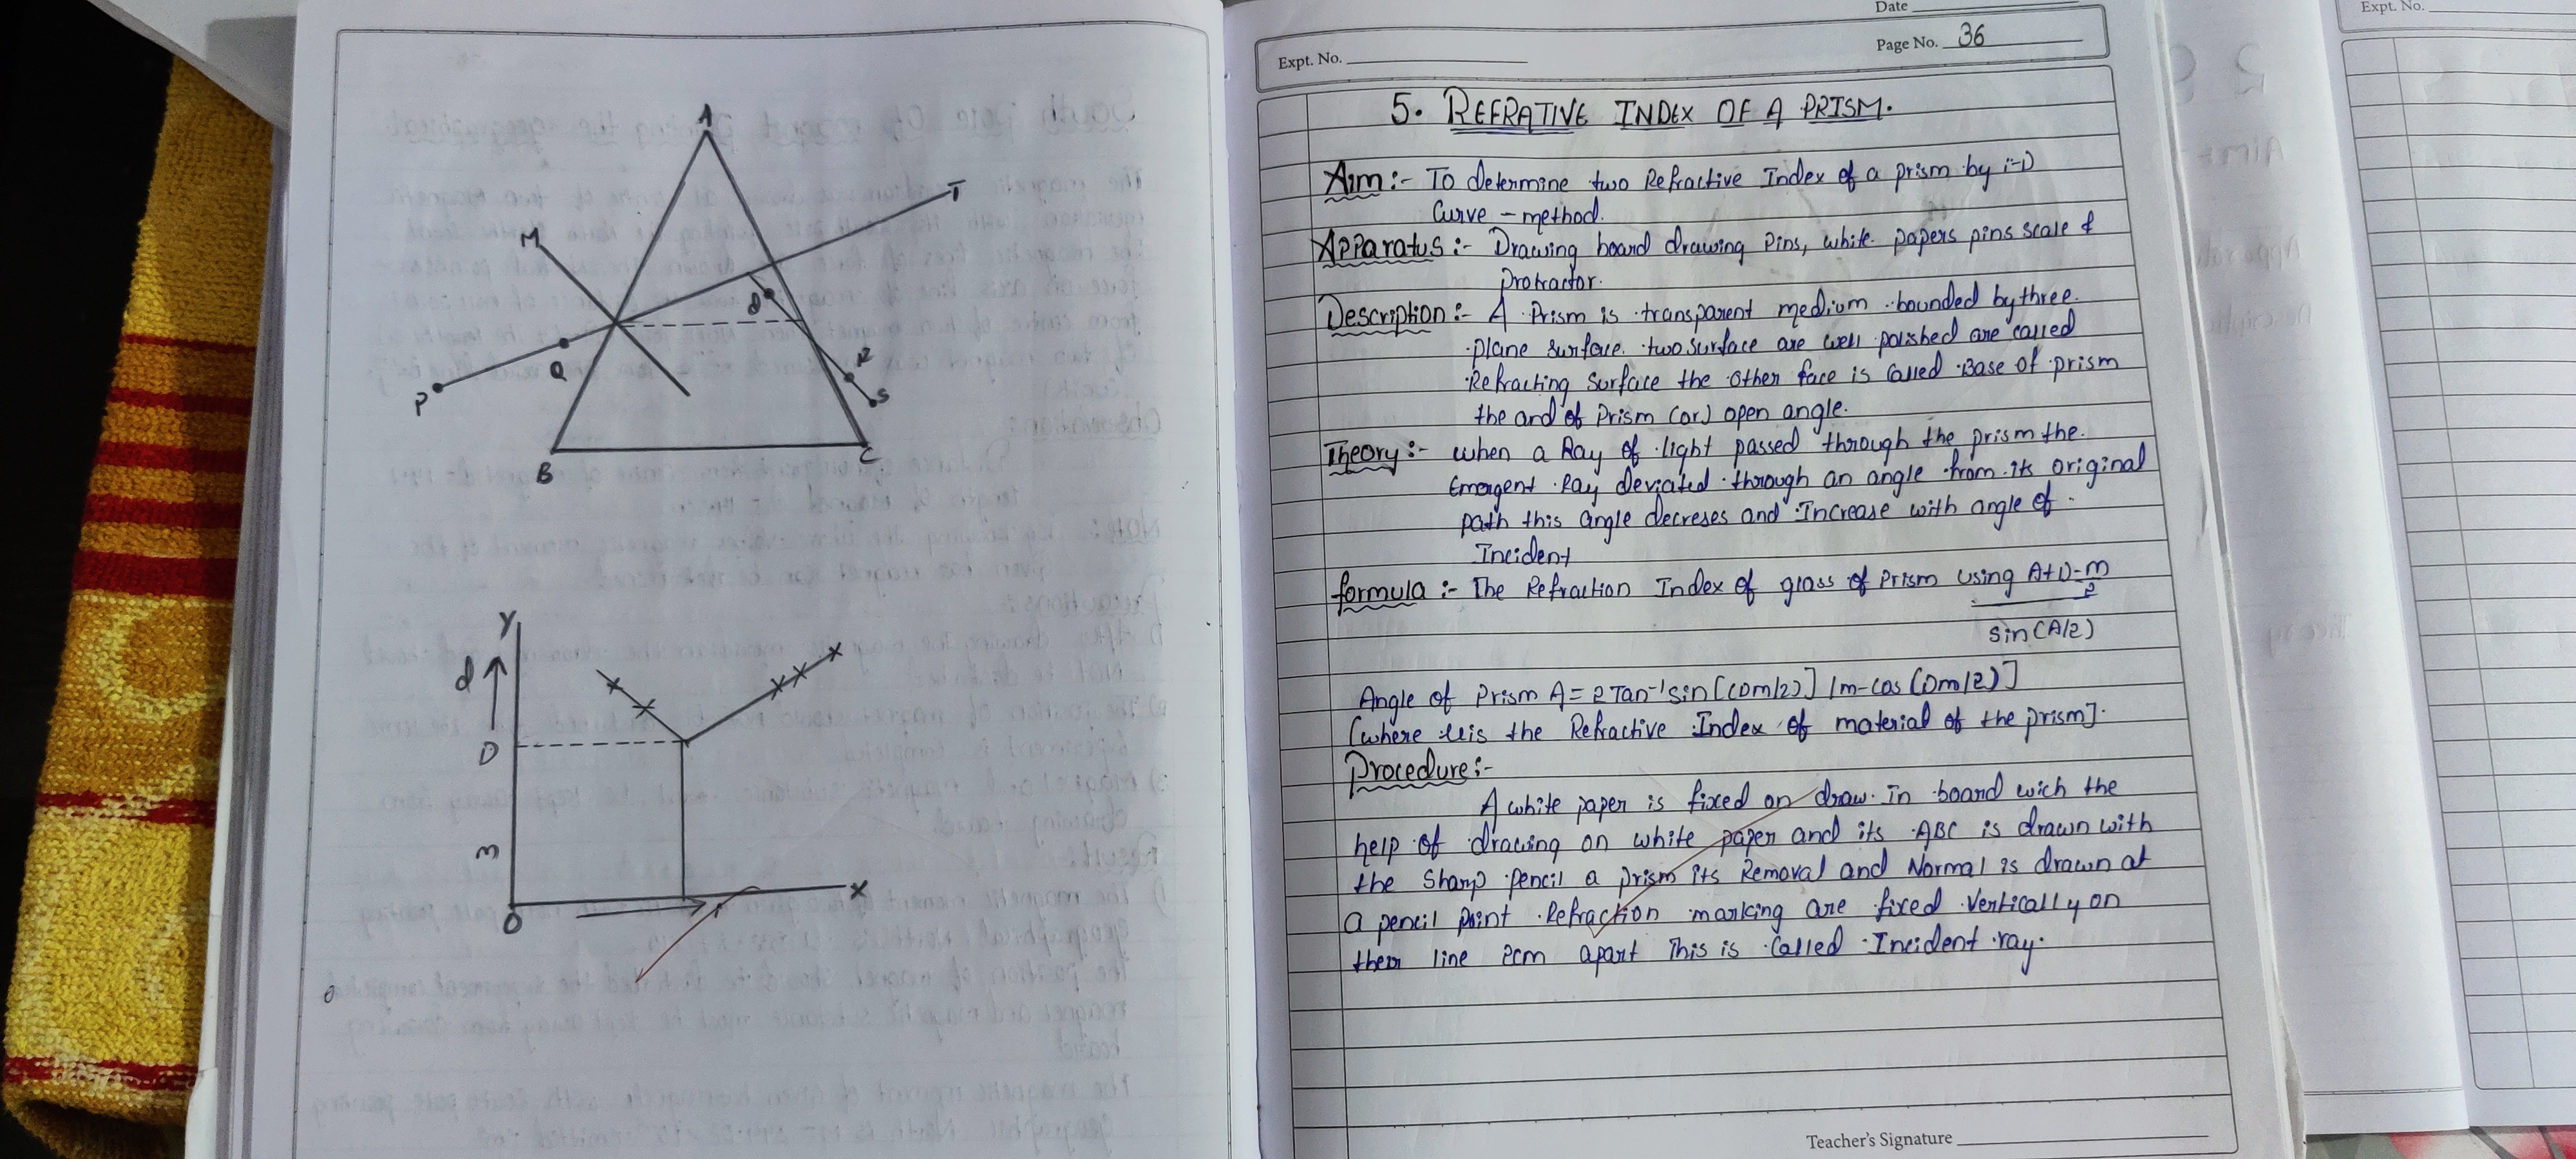 A
M
T
d
Q
P
R
S
B
C
Y
d
D
m
O
X
Date
Expt. No.
Page No. 36
5. REFRATIVE INDEX OF A PRISM.
Aim:- To determine two Refractive Index of a prism by i-D
Curve - method.
Apparatus:- Drawing board drawing Pins, white papers pins scale &
Protractor.
Description:- A Prism is transparent medium bounded by three
plane surface. two surface are well polished are called
Refracting surface the other face is called Base of prism
the and of Prism (or) open angle.
Theory:- when a Ray of light passed through the prism the
Emergent Ray deviated through an angle from its original
path this angle decreses and Increase with angle of
Incident
formula:- The Refraction Index of glass of Prism using A+D-m
2
sin(A/2)
Angle of Prism A= 2Tan-1sin[(Dm/2)] /m-cos(Dm/2)]
(where is the Refractive Index of material of the prism].
Procedure:-
A white paper is fixed on draw in board wich the
help of drawing on white paper and its ABC is drawn with
the sharp pencil a prism its Removal and Normal is drawn at
a pencil point Refraction marking are fixed vertically on
line 2cm apart This is called Incident ray.
Teacher's Signature
Expt. No.